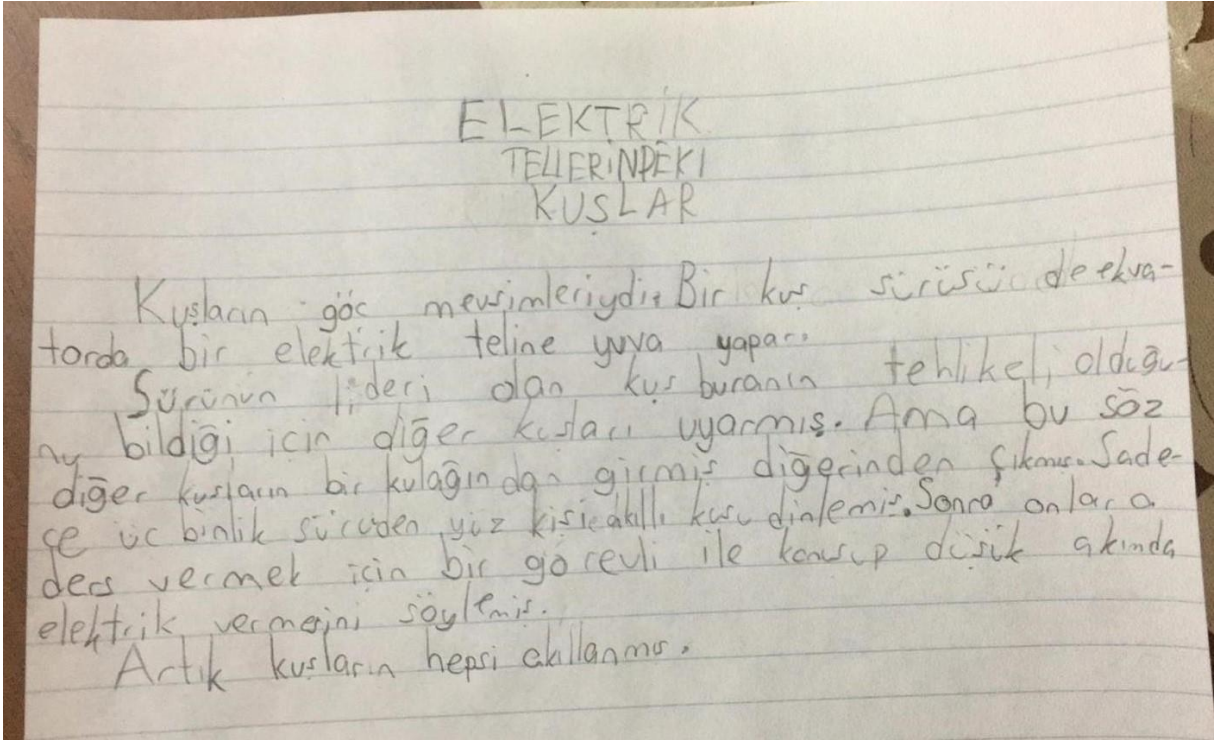 ELEKTRİK
TELLERİNDEKİ
KUŞLAR
Kuşların göç mevsimleriydi. Bir kuş sürüsü de ekva-
torda bir elektrik teline yuva yapar.
Sürünün lideri olan kuş buranın tehlikeli olduğu-
nu bildiği için diğer kuşları uyarmış. Ama bu söz
diğer kuşların bir kulağından girmiş diğerinden çıkmış. Sade-
ce üç binlik sürüden yüz kişi akıllı kuşu dinlemiş. Sonra onlara
ders vermek için bir görevli ile konuşup düşük akımda
elektrik vermesini söylemiş.
Artık kuşların hepsi akıllanmış.